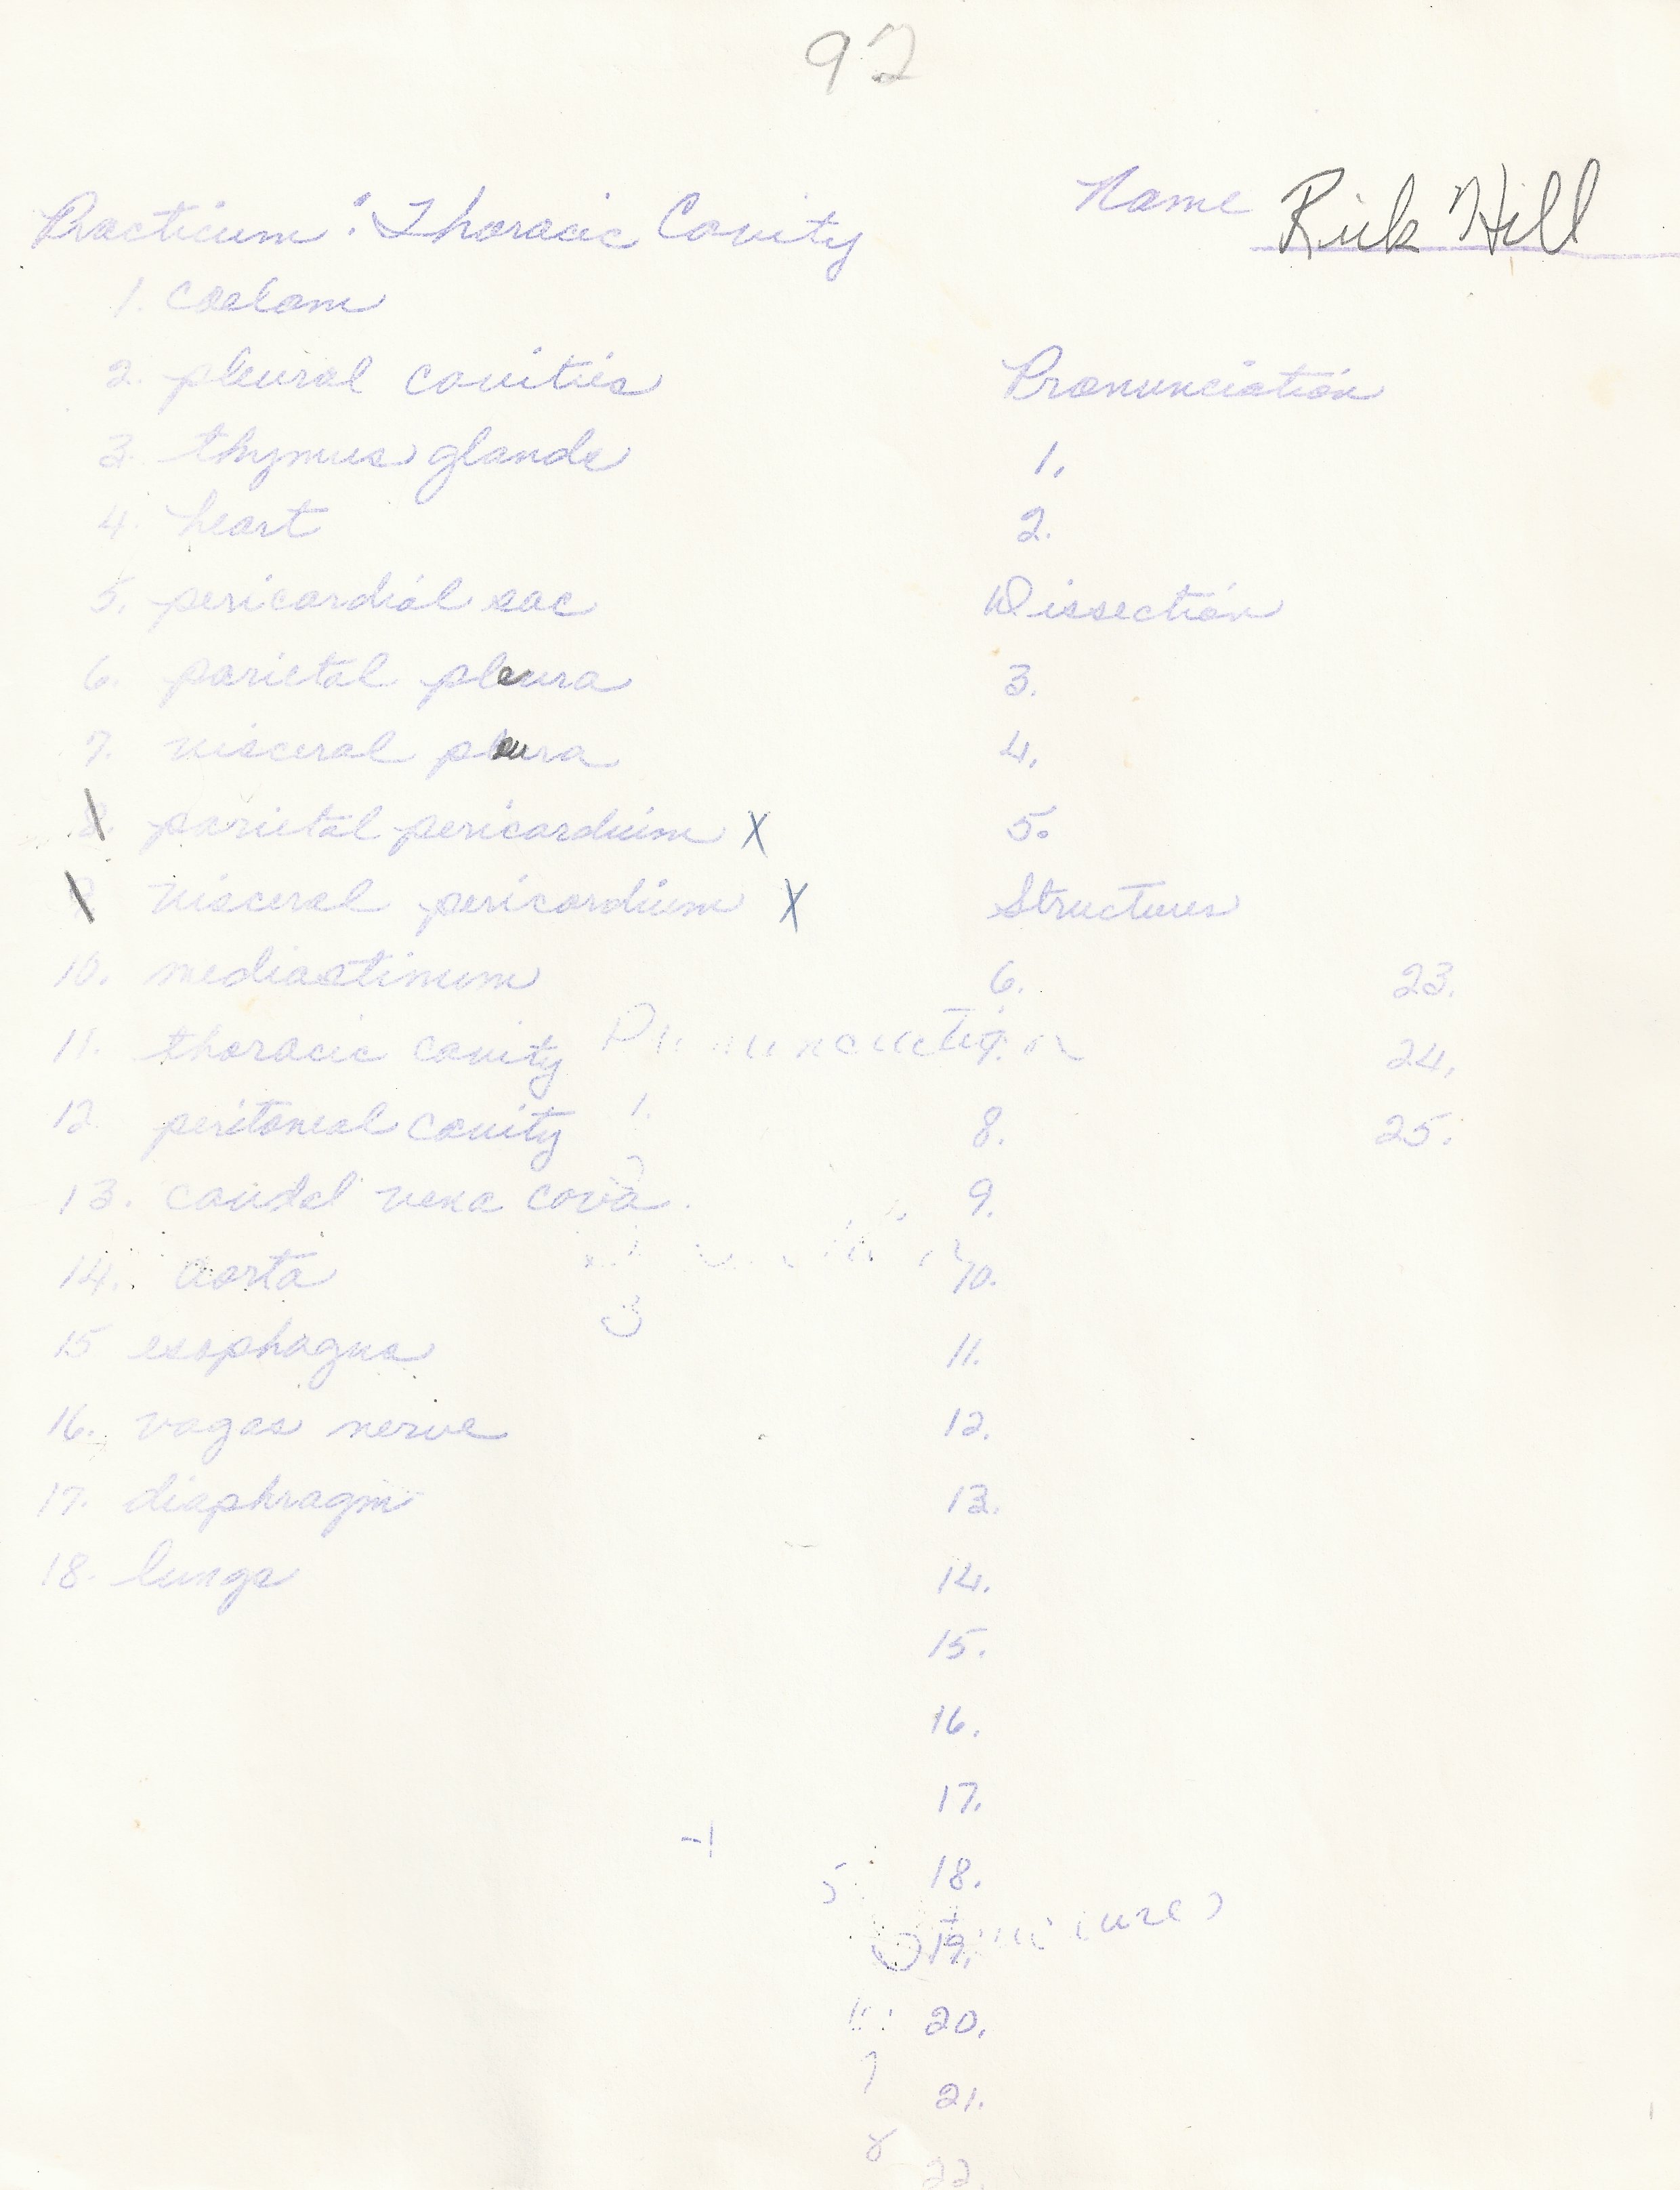 92
Name Rick Hill
Practicum: Thoracic Cavity
1. coelom
2. pleural cavities
3. thymus glands
4. heart
5. pericardial sac
6. parietal pleura
7. visceral pleura
8. parietal pericardium X
9. visceral pericardium X
10. mediastinum
11. thoracic cavity
12. peritoneal cavity
13. caudal vena cava
14. aorta
15 esophagus
16. vagas nerve
17. diaphragm
18. lungs
Pronunciation
1.
2.
Dissection
3.
4.
5.
Structures
6.
7.
8.
9.
10.
11.
12.
13.
14.
15.
16.
17.
18.
19.
20.
21.
22.
23.
24.
25.
Pronunciation
1.
2
3
-1
5
7
8